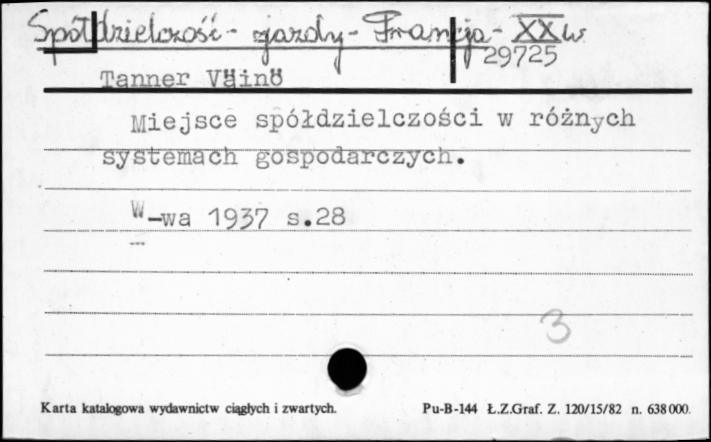 Spółdzielczość - zjazdy - Francja - XX w
29725
Tanner Väinö
Miejsce spółdzielczości w różnych
systemach gospodarczych.
W-wa 1937 s.28
3
Karta katalogowa wydawnictw ciągłych i zwartych. Pu-B-144 Ł.Z.Graf. Z. 120/15/82 n. 638000.